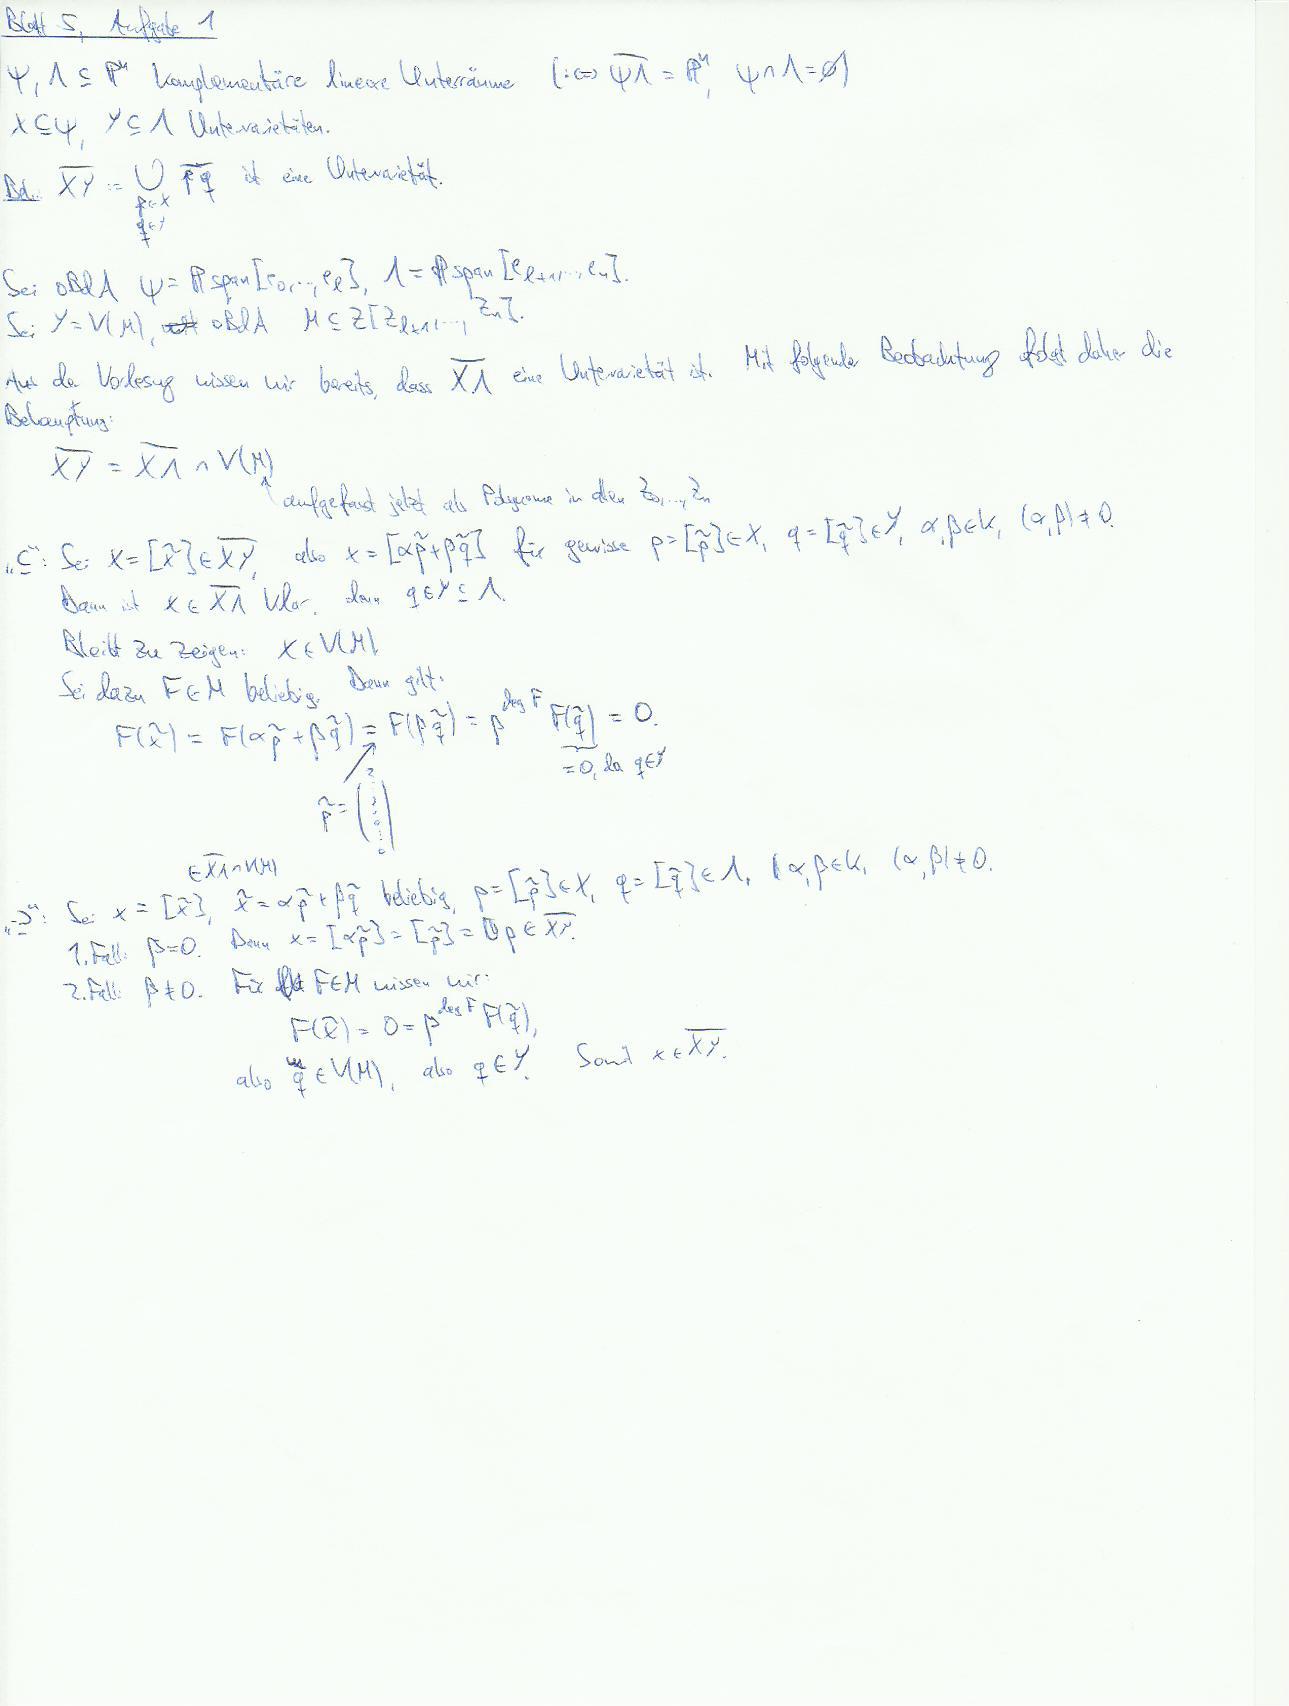 Blatt 5, Aufgabe 1
Ψ, Λ ⊆ ℙⁿ komplementäre lineare Unterräume (:⇔ \overline{ΨΛ} = ℙⁿ, Ψ∩Λ=∅)
X⊆Ψ, Y⊆Λ Untervarietäten.
Beh.: \overline{XY} := ⋃ \overline{pq} ist eine Untervarietät.
p∈X
q∈Y
Sei oBdA Ψ = ℙspan[e₀,...,e_ℓ], Λ = ℙspan[e_{ℓ+1},...,e_n].
Sei Y=V(M), oBdA M ⊆ Z[Z_{ℓ+1},..., Z_n].
Aus der Vorlesung wissen wir bereits, dass \overline{XΛ} eine Untervarietät ist. Mit folgender Beobachtung folgt daher die
Behauptung:
\overline{XY} = \overline{XΛ} ∩ V(M)
aufgefasst jetzt als Polynome in den Z₀,...,Z_n
„⊆“: Sei x=[x̃]∈\overline{XY}, also x=[αp̃+βq̃] für gewisse p=[p̃]∈X, q=[q̃]∈Y, α,β∈K, (α,β)≠0.
Dann ist x∈\overline{XΛ} klar, denn q∈Y⊆Λ.
Bleibt zu zeigen: x∈V(M)
Sei dazu F∈M beliebig. Dann gilt:
F(x̃) = F(αp̃+βq̃) = F(βq̃) = β^{deg F} F(q̃) = 0.
=0, da q∈Y
p̃ = (? ⋮ ? 0 ⋮ 0)
∈\overline{XΛ}∩V(M)
„⊇“: Sei x=[x̃], x̃=αp̃+βq̃ beliebig, p=[p̃]∈X, q=[q̃]∈Λ, α,β∈K, (α,β)≠0.
1. Fall: β=0. Dann x=[αp̃]=[p̃]=p∈\overline{XY}.
2. Fall: β≠0. Für F∈M wissen wir:
F(x̃) = 0 = β^{deg F} F(q̃),
also q∈V(M), also q∈Y. Somit x∈\overline{XY}.